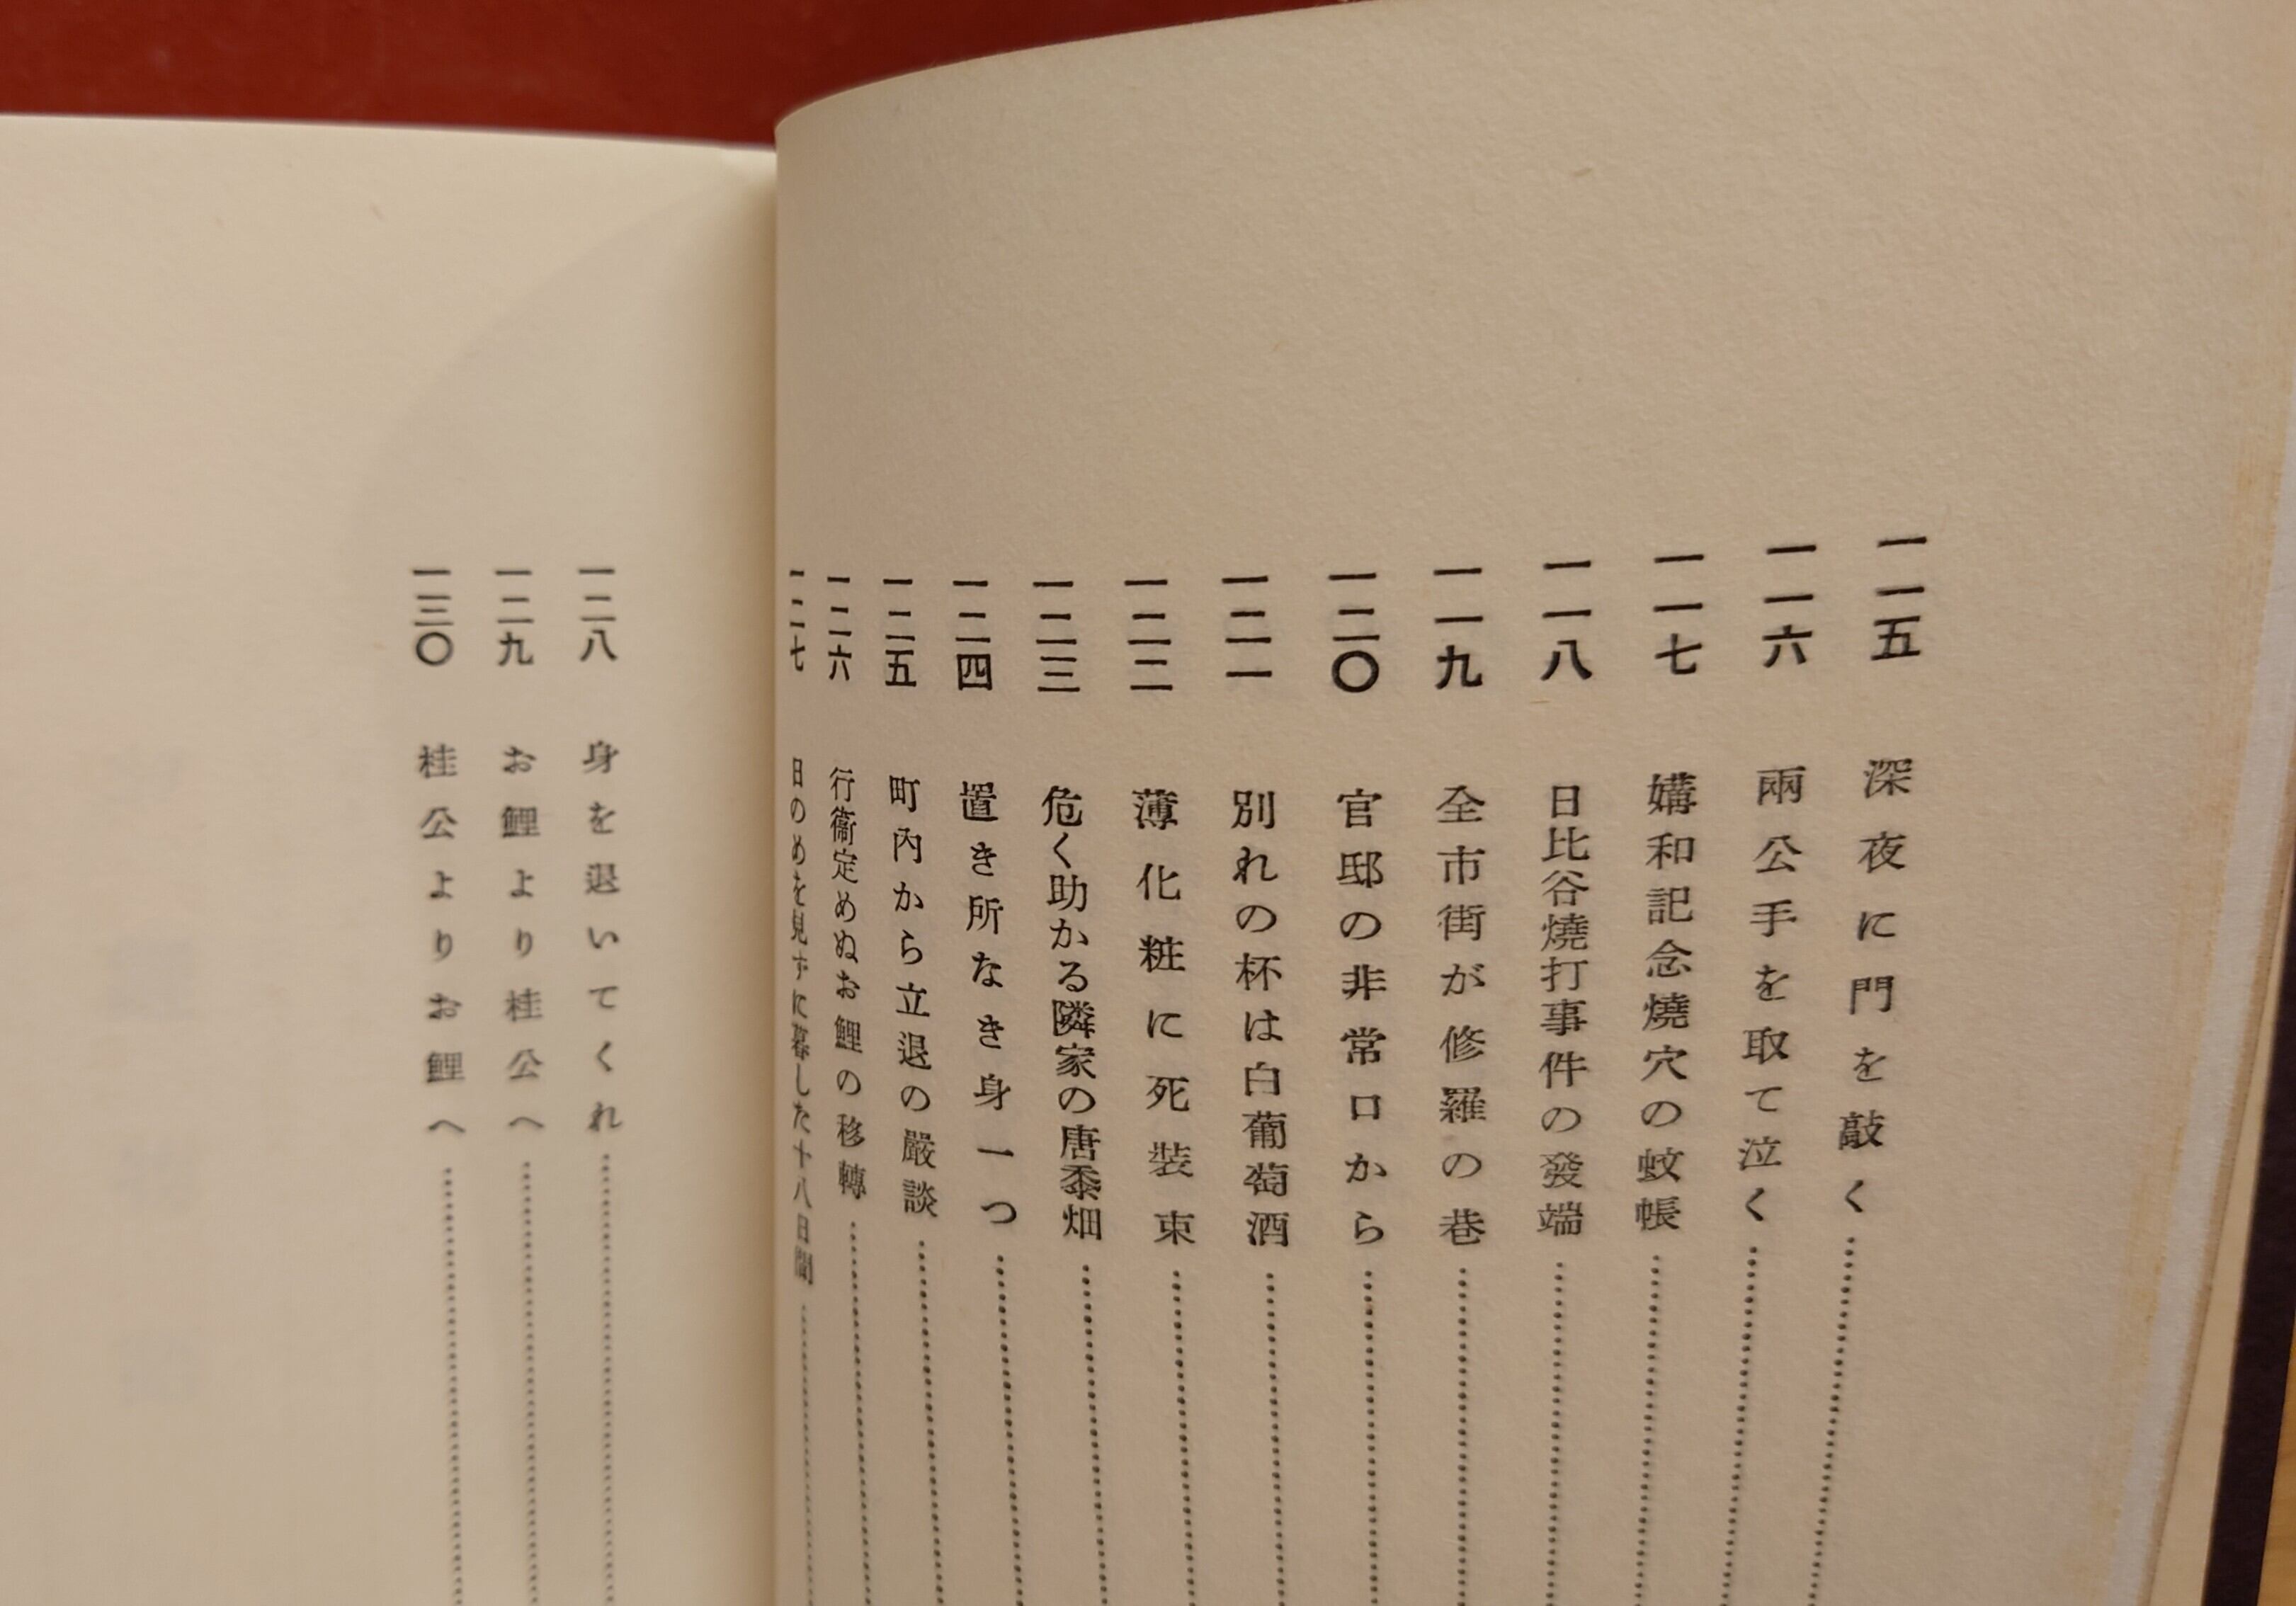 一一五 深夜に門を敲く
一一六 兩公手を取て泣く
一一七 媾和記念燒穴の蚊帳
一一八 日比谷燒打事件の發端
一一九 全市街が修羅の巷
一二〇 官邸の非常口から
一二一 別れの杯は白葡萄酒
一二二 薄化粧に死裝束
一二三 危く助かる隣家の唐黍畑
一二四 置き所なき身一つ
一二五 町內から立退の嚴談
一二六 行衞定めぬお鯉の移轉
一二七 日のめを見ずに暮した十八日間
一二八 身を退いてくれ
一二九 お鯉より桂公へ
一三〇 桂公よりお鯉へ